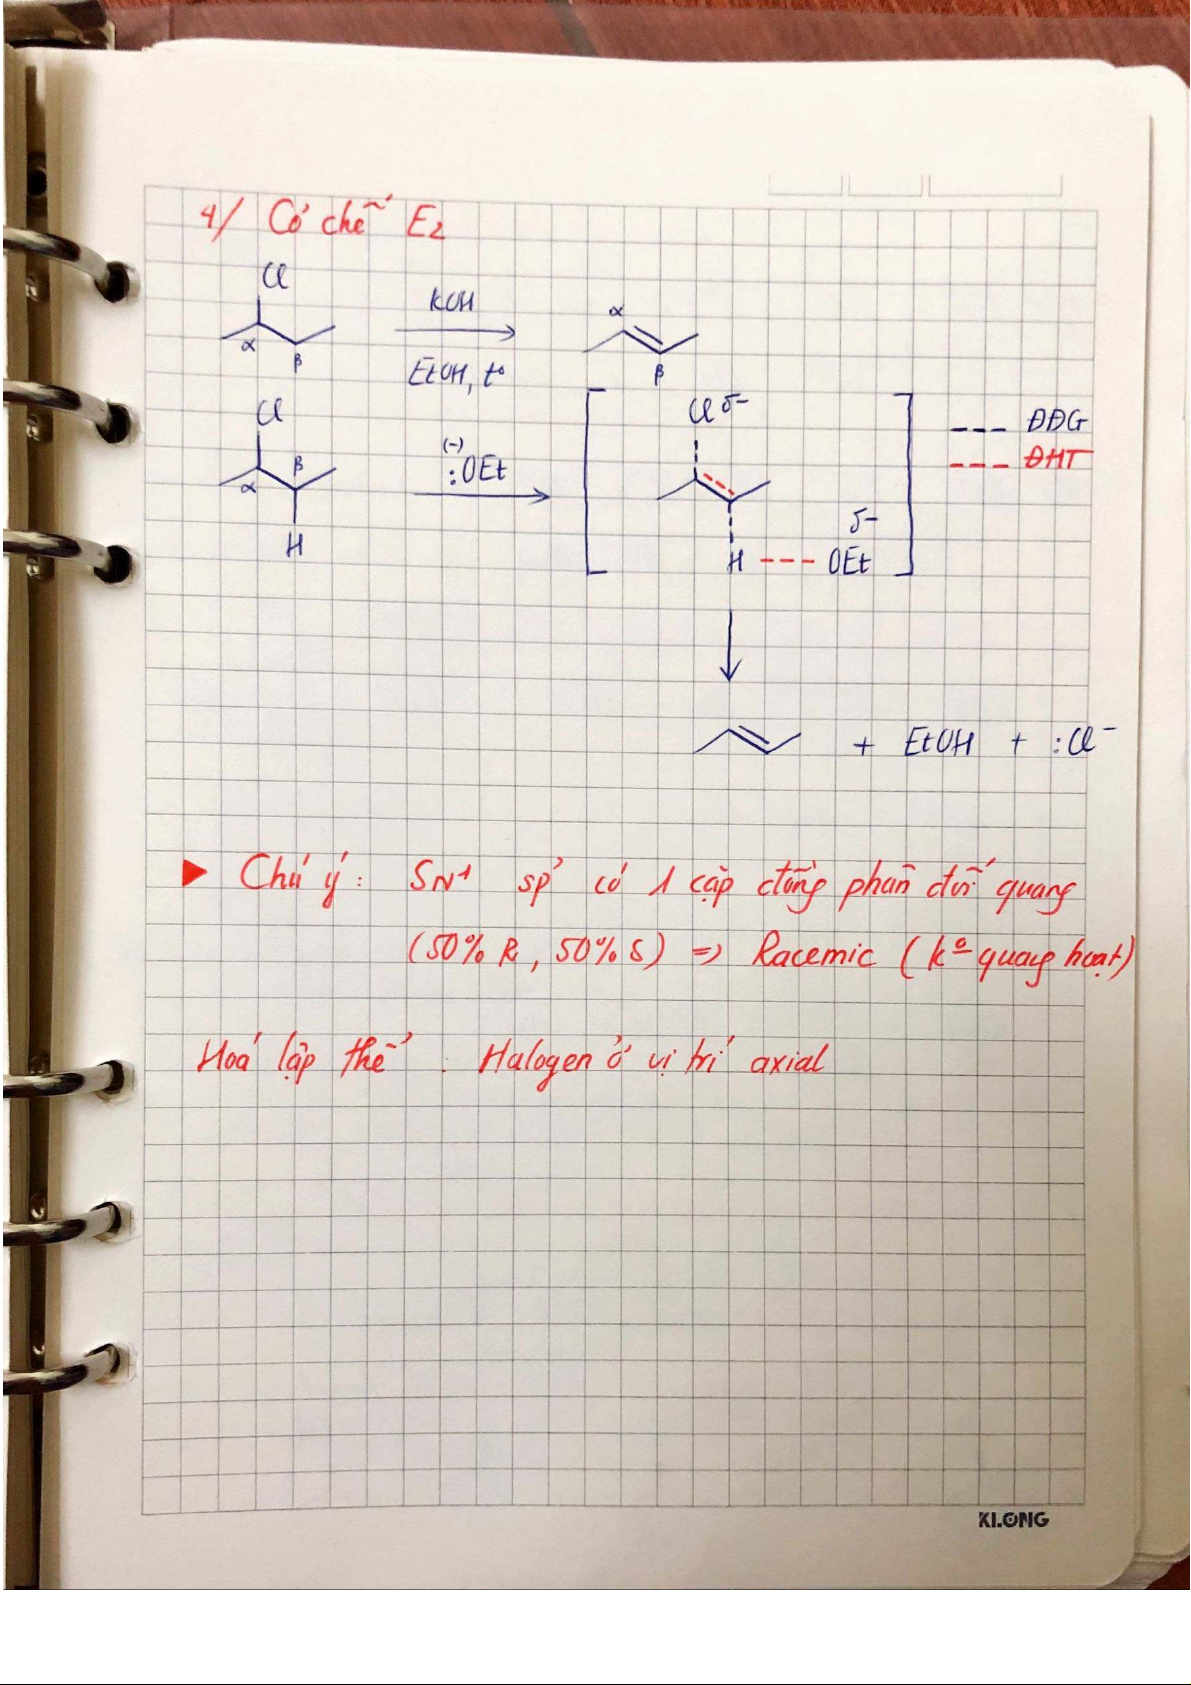 4/ Cơ chế E2
Cl
α
β
KOH
EtOH, t°
α
β
Cl
α
β
H
(-)
:OEt
Cl δ-
H --- OEt
δ-
--- ĐĐG
--- ĐHT
+ EtOH + :Cl⁻
▶ Chú ý: SN1 sp' có 1 cặp đồng phân đối quang
(50% R, 50% S) => Racemic (kº quang hoạt)
Hoá lập thể : Halogen ở vị trí axial
KLONG